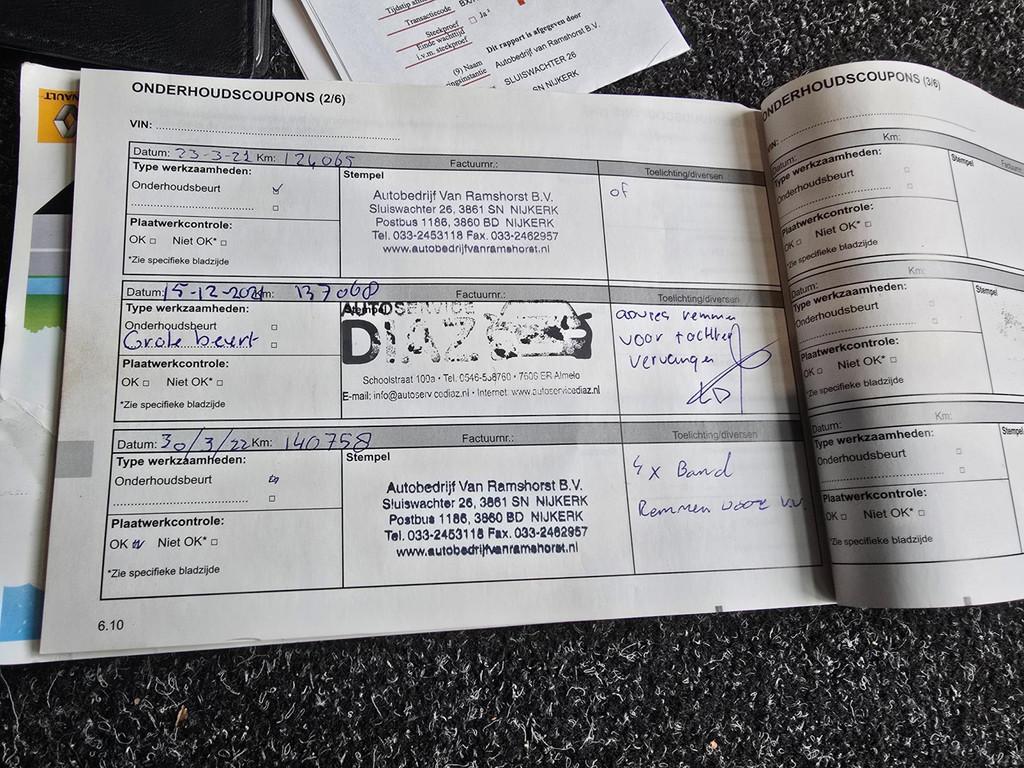 Tijdstip
Transactiecode
Steekproef
Ja
Einde wachttijd
i.v.m. steekproef
Dit rapport is afgegeven door
(9) Naam
Autobedrijf van Ramshorst B.V.
SLUISWACHTER 26
SN NIJKERK
RENAULT
ONDERHOUDSCOUPONS (2/6)
VIN:
Datum: 23-3-21 Km: 124065 Factuurnr.: Toelichting/diversen
Type werkzaamheden:
Onderhoudsbeurt
Plaatwerkcontrole:
OK Niet OK*
*Zie specifieke bladzijde
Stempel
Autobedrijf Van Ramshorst B.V.
Sluiswachter 26, 3861 SN NIJKERK
Postbus 1186, 3860 BD NIJKERK
Tel. 033-2453118 Fax. 033-2462957
www.autobedrijfvanramshorst.nl
of
Datum: 15-12-2021 Km: 137068 Factuurnr.: Toelichting/diversen
Type werkzaamheden:
Onderhoudsbeurt
Grote beurt
Plaatwerkcontrole:
OK Niet OK*
*Zie specifieke bladzijde
AUTOSERVICE
DIAZ
Schoolstraat 100a • Tel. 0546-538760 • 7606 ER Almelo
E-mail: info@autoservicediaz.nl • Internet: www.autoservicediaz.nl
advies remmen
voor
vervangen
Datum: 30/3/22 Km: 140758 Factuurnr.: Toelichting/diversen
Type werkzaamheden:
Onderhoudsbeurt
Plaatwerkcontrole:
OK Niet OK*
*Zie specifieke bladzijde
Stempel
Autobedrijf Van Ramshorst B.V.
Sluiswachter 26, 3861 SN NIJKERK
Postbus 1186, 3860 BD NIJKERK
Tel. 033-2453118 Fax. 033-2462957
www.autobedrijfvanramshorst.nl
4 x Band
Remmen voor
6.10
ONDERHOUDSCOUPONS (3/6)
VIN:
Datum: Km:
Type werkzaamheden:
Onderhoudsbeurt
Plaatwerkcontrole:
OK Niet OK*
*Zie specifieke bladzijde
Stempel
Datum: Km:
Type werkzaamheden:
Onderhoudsbeurt
Plaatwerkcontrole:
OK Niet OK*
*Zie specifieke bladzijde
Stempel
Datum: Km:
Type werkzaamheden:
Onderhoudsbeurt
Plaatwerkcontrole:
OK Niet OK*
*Zie specifieke bladzijde
Stempel